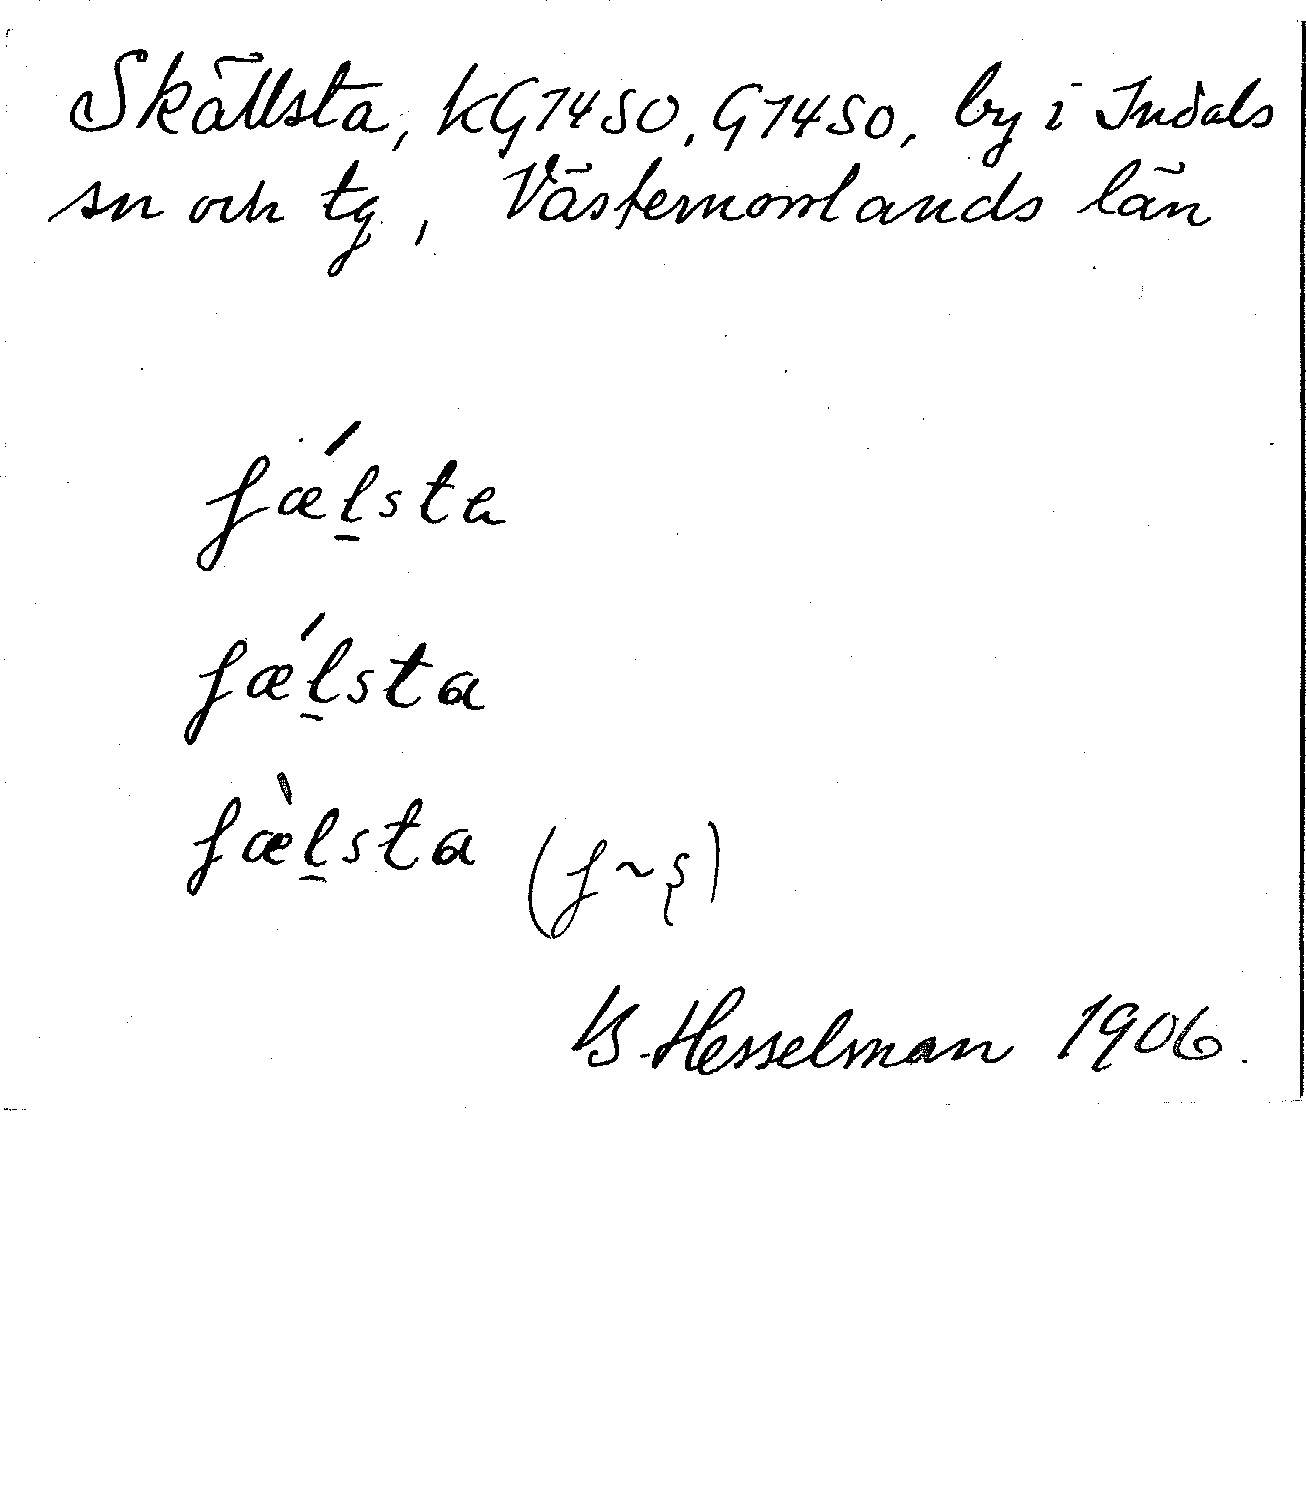 Skällsta, KG74SO, G74SO, by i Indals
sn och tg, Västernorrlands län
ʃæ̱ĺsta
ʃæ̱ĺsta
ʃæ̱l̀sta (ʃ~ʂ)
B. Hesselman 1906.